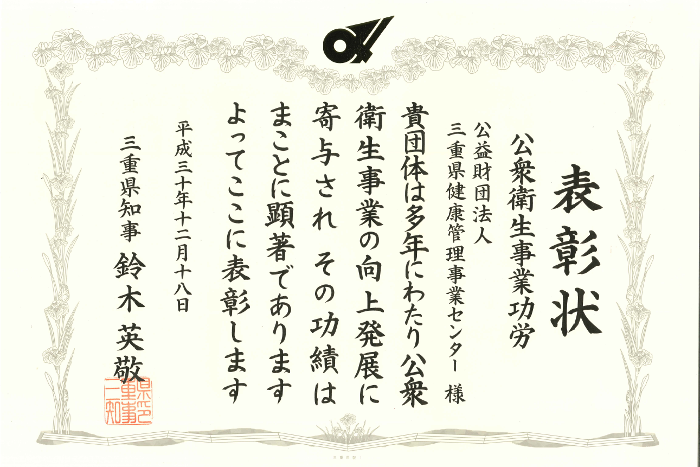 表彰状
公衆衛生事業功労
公益財団法人
三重県健康管理事業センター 様
貴団体は多年にわたり公衆
衛生事業の向上発展に
寄与され その功績は
まことに顕著であります
よってここに表彰します
平成三十年十二月十八日
三重県知事 鈴木英敬